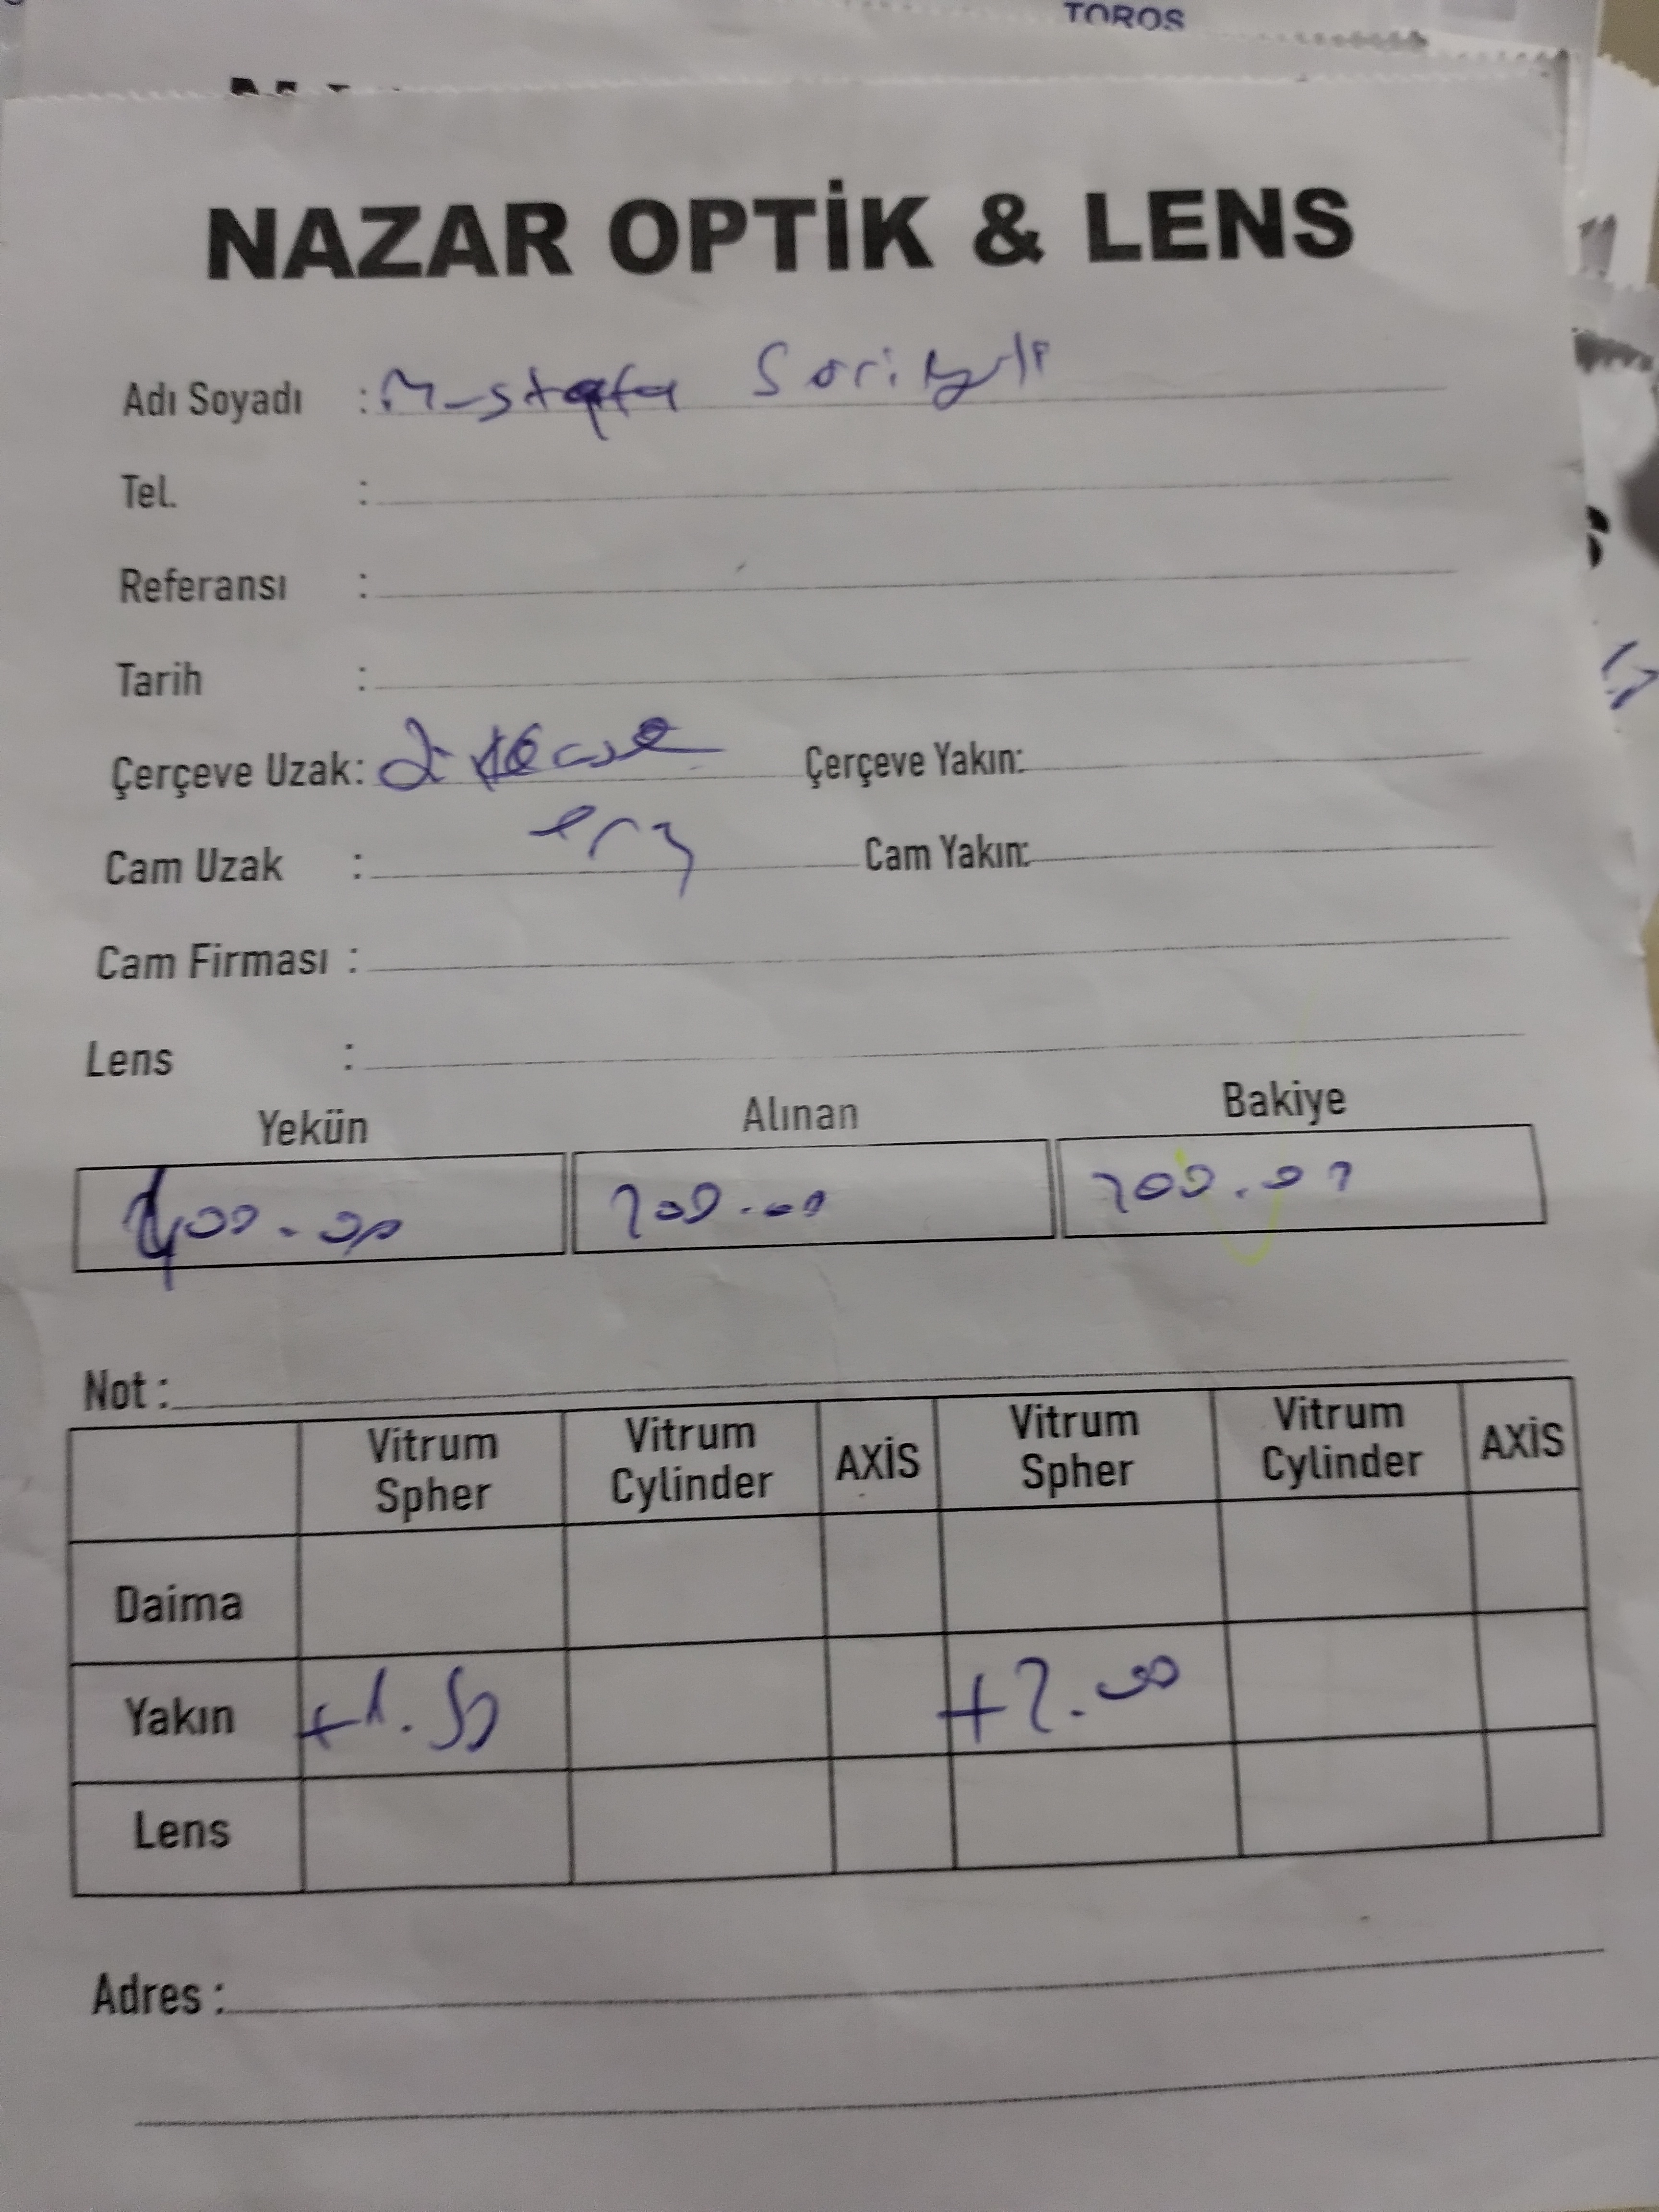 TOROS
NAZAR OPTİK & LENS
Adı Soyadı : Mustafa
Tel. :
Referansı :
Tarih :
Çerçeve Uzak: Çerçeve Yakın:
Cam Uzak : Cam Yakın:
Cam Firması :
Lens :
Yekün Alınan Bakiye
400.00 200.00 200.00
Not :
Vitrum Spher Vitrum Cylinder AXİS Vitrum Spher Vitrum Cylinder AXİS
Daima
Yakın +1.50 +2.00
Lens
Adres :